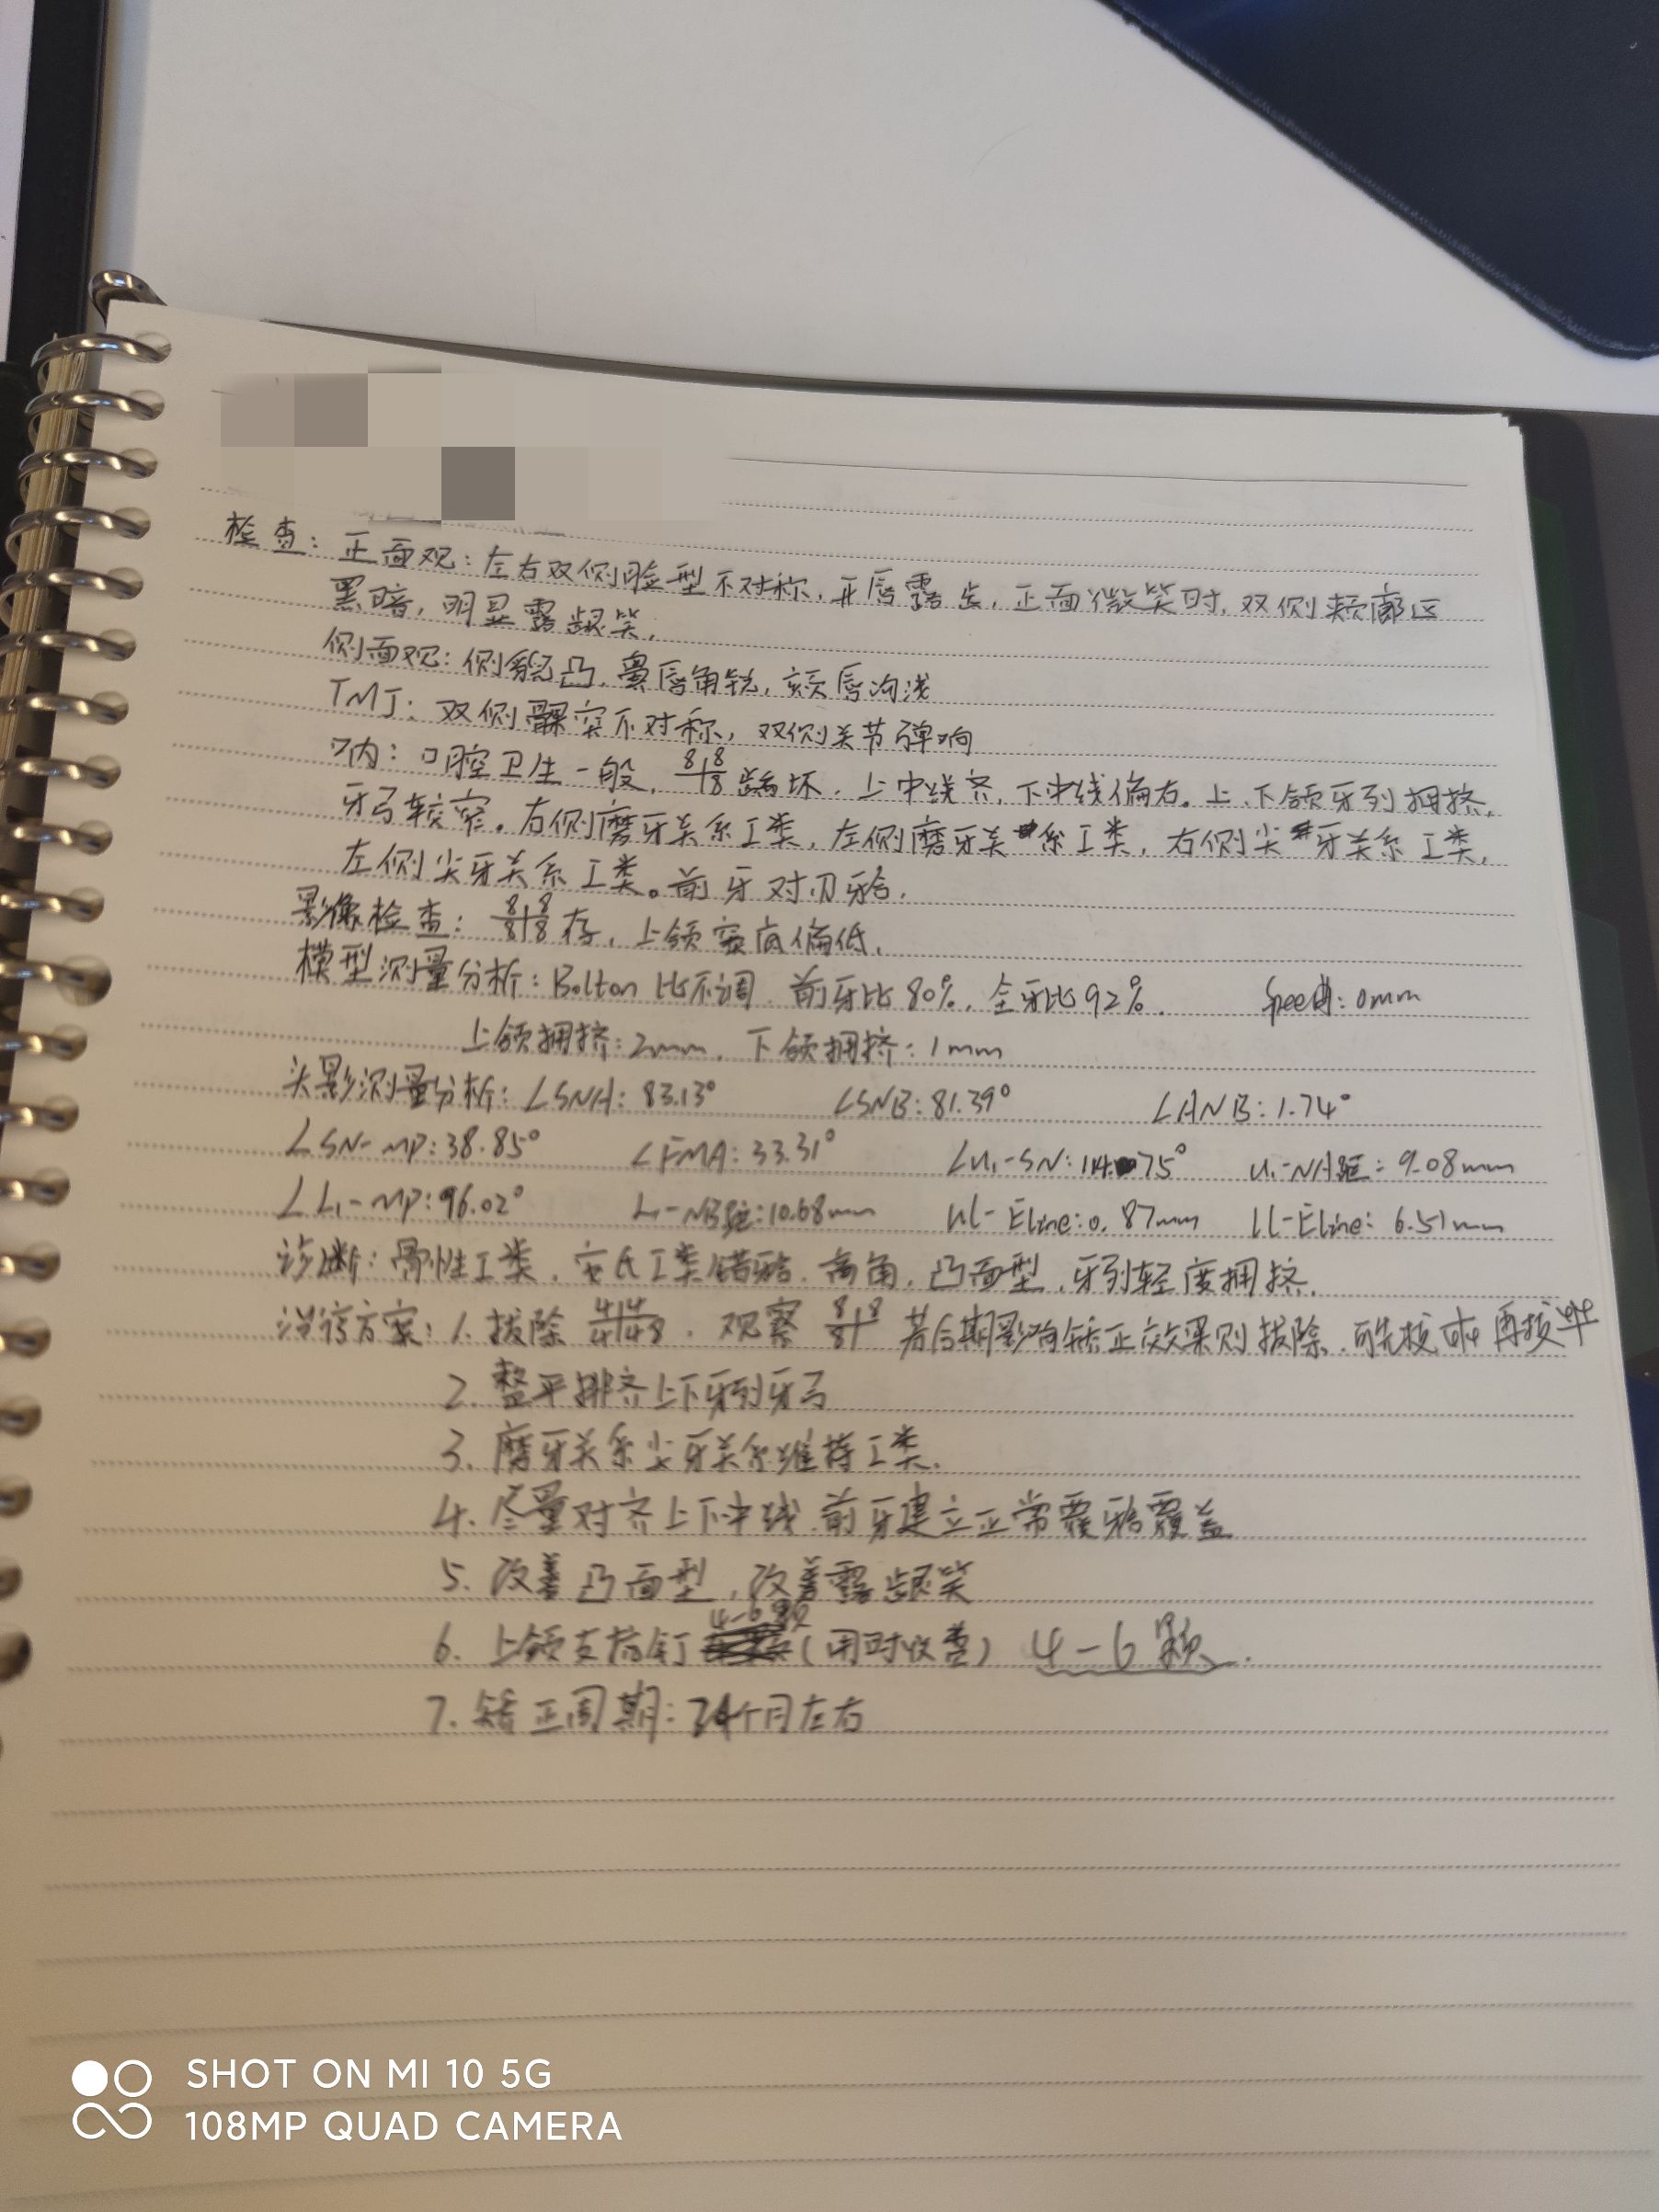 检查: 正面观: 左右双侧脸型不对称, 开唇露齿, 正面微笑时, 双侧颊廓区
黑暗, 明显露龈笑.
侧面观: 侧貌凸, 鼻唇角锐, 颏唇沟浅
TMJ: 双侧髁突不对称, 双侧关节弹响
口内: 口腔卫生一般, 8|8 / |8 龋坏. 上中线齐, 下中线偏右. 上.下颌牙列拥挤,
牙弓较窄. 右侧磨牙关系I类, 左侧磨牙关系I类, 右侧尖牙关系I类,
左侧尖牙关系I类. 前牙对刃𬌗.
影像检查: 8|8 / 8|8 存, 上颌窦底偏低.
模型测量分析: Bolton比不调. 前牙比80%, 全牙比92%. Spee曲: 0mm
上颌拥挤: 2mm, 下颌拥挤: 1mm
头影测量分析: ∠SNA: 83.13° ∠SNB: 81.39° ∠ANB: 1.74°
∠SN-MP: 38.85° ∠FMA: 33.31° ∠U1-SN: 114.75° U1-NA距: 9.08mm
∠L1-MP: 96.02° L1-NB距: 10.68mm UL-Eline: 0.87mm LL-Eline: 6.51mm
诊断: 骨性I类, 安氏I类错𬌗. 高角, 凸面型, 牙列轻度拥挤.
治疗方案: 1. 拔除 4|4 / 4|48 . 观察 8|8 / 8| 若后期影响矫正效果则拔除. 再拔
2. 整平排齐上下牙列牙弓
3. 磨牙关系尖牙关系维持I类.
4. 尽量对齐上下中线 前牙建立正常覆𬌗覆盖
5. 改善凸面型, 改善露龈笑
6. 上颌支抗钉 4-6颗 (用时收费) 4-6颗.
7. 矫正周期: 24个月左右
SHOT ON MI 10 5G
108MP QUAD CAMERA